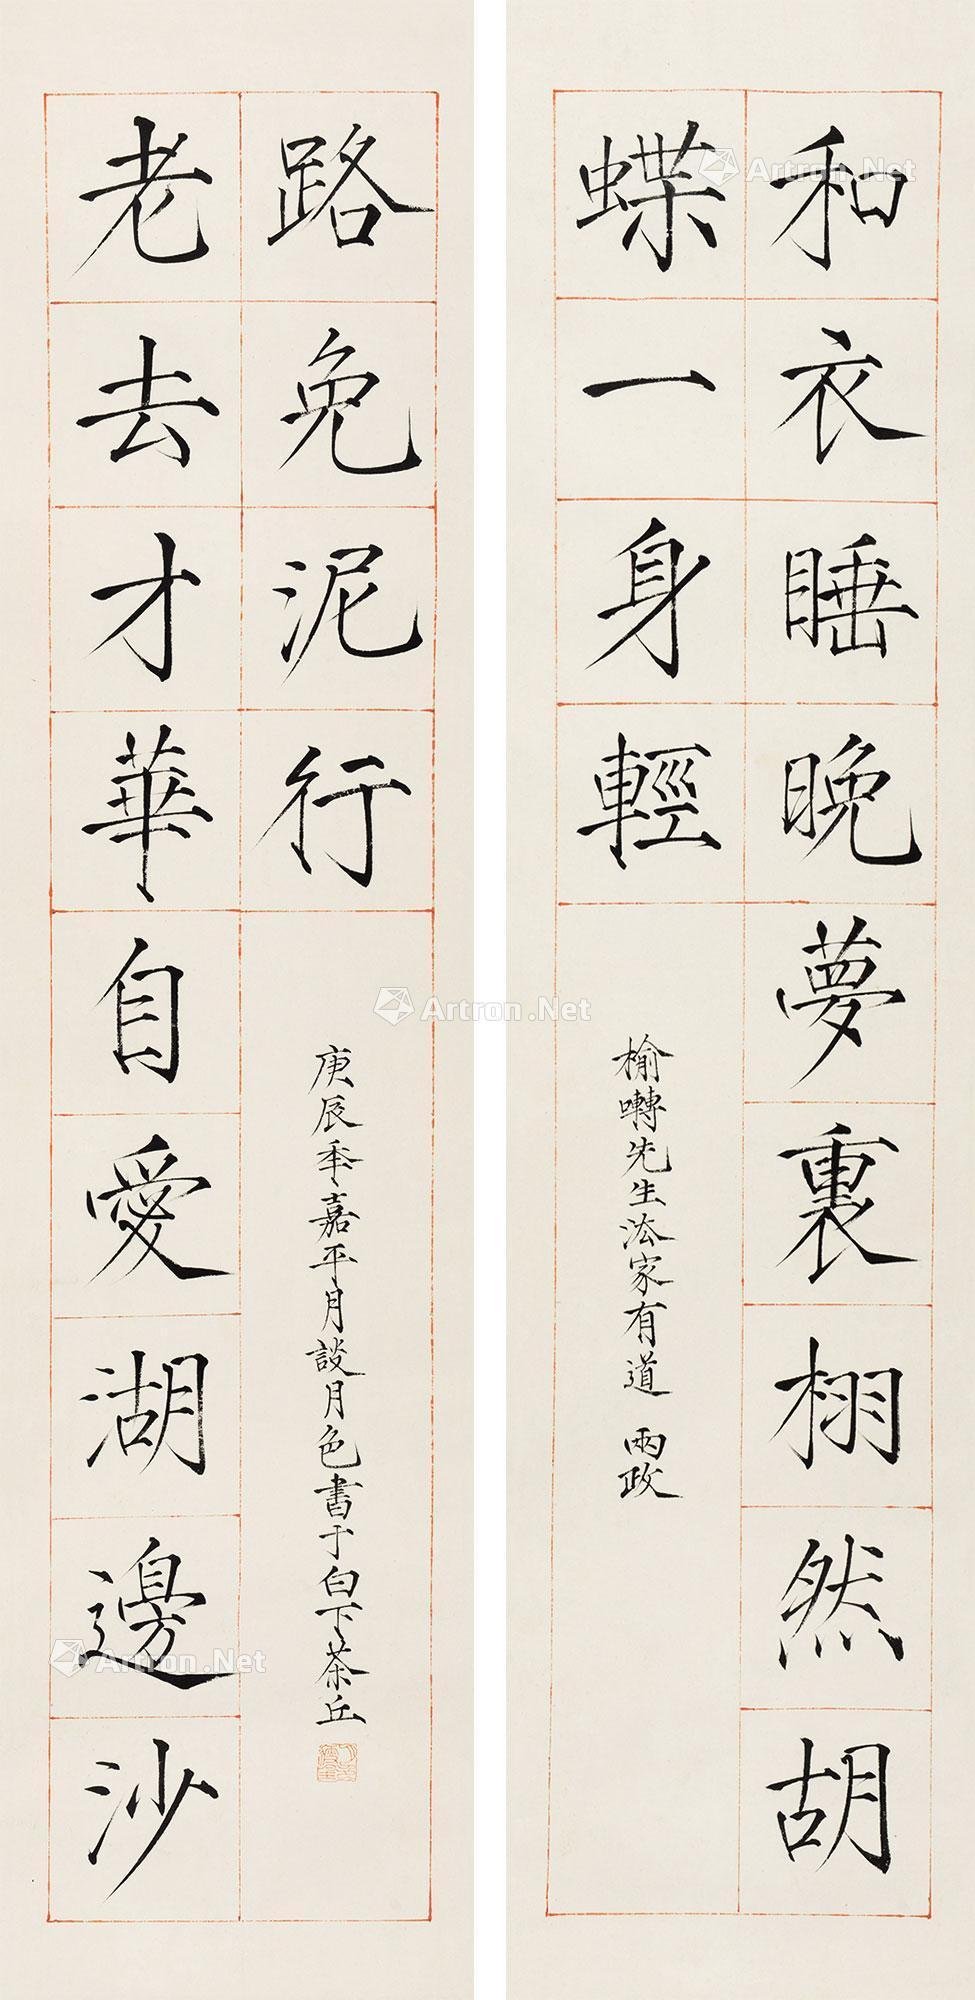 和衣睡晚夢裏栩然胡
蝶一身輕
榆囀先生法家有道 兩政
老去才華自愛湖邊沙
路免泥行
庚辰秊嘉平月談月色書于白下茶丘
Artron.Net
Artron.Net
Artron.Net